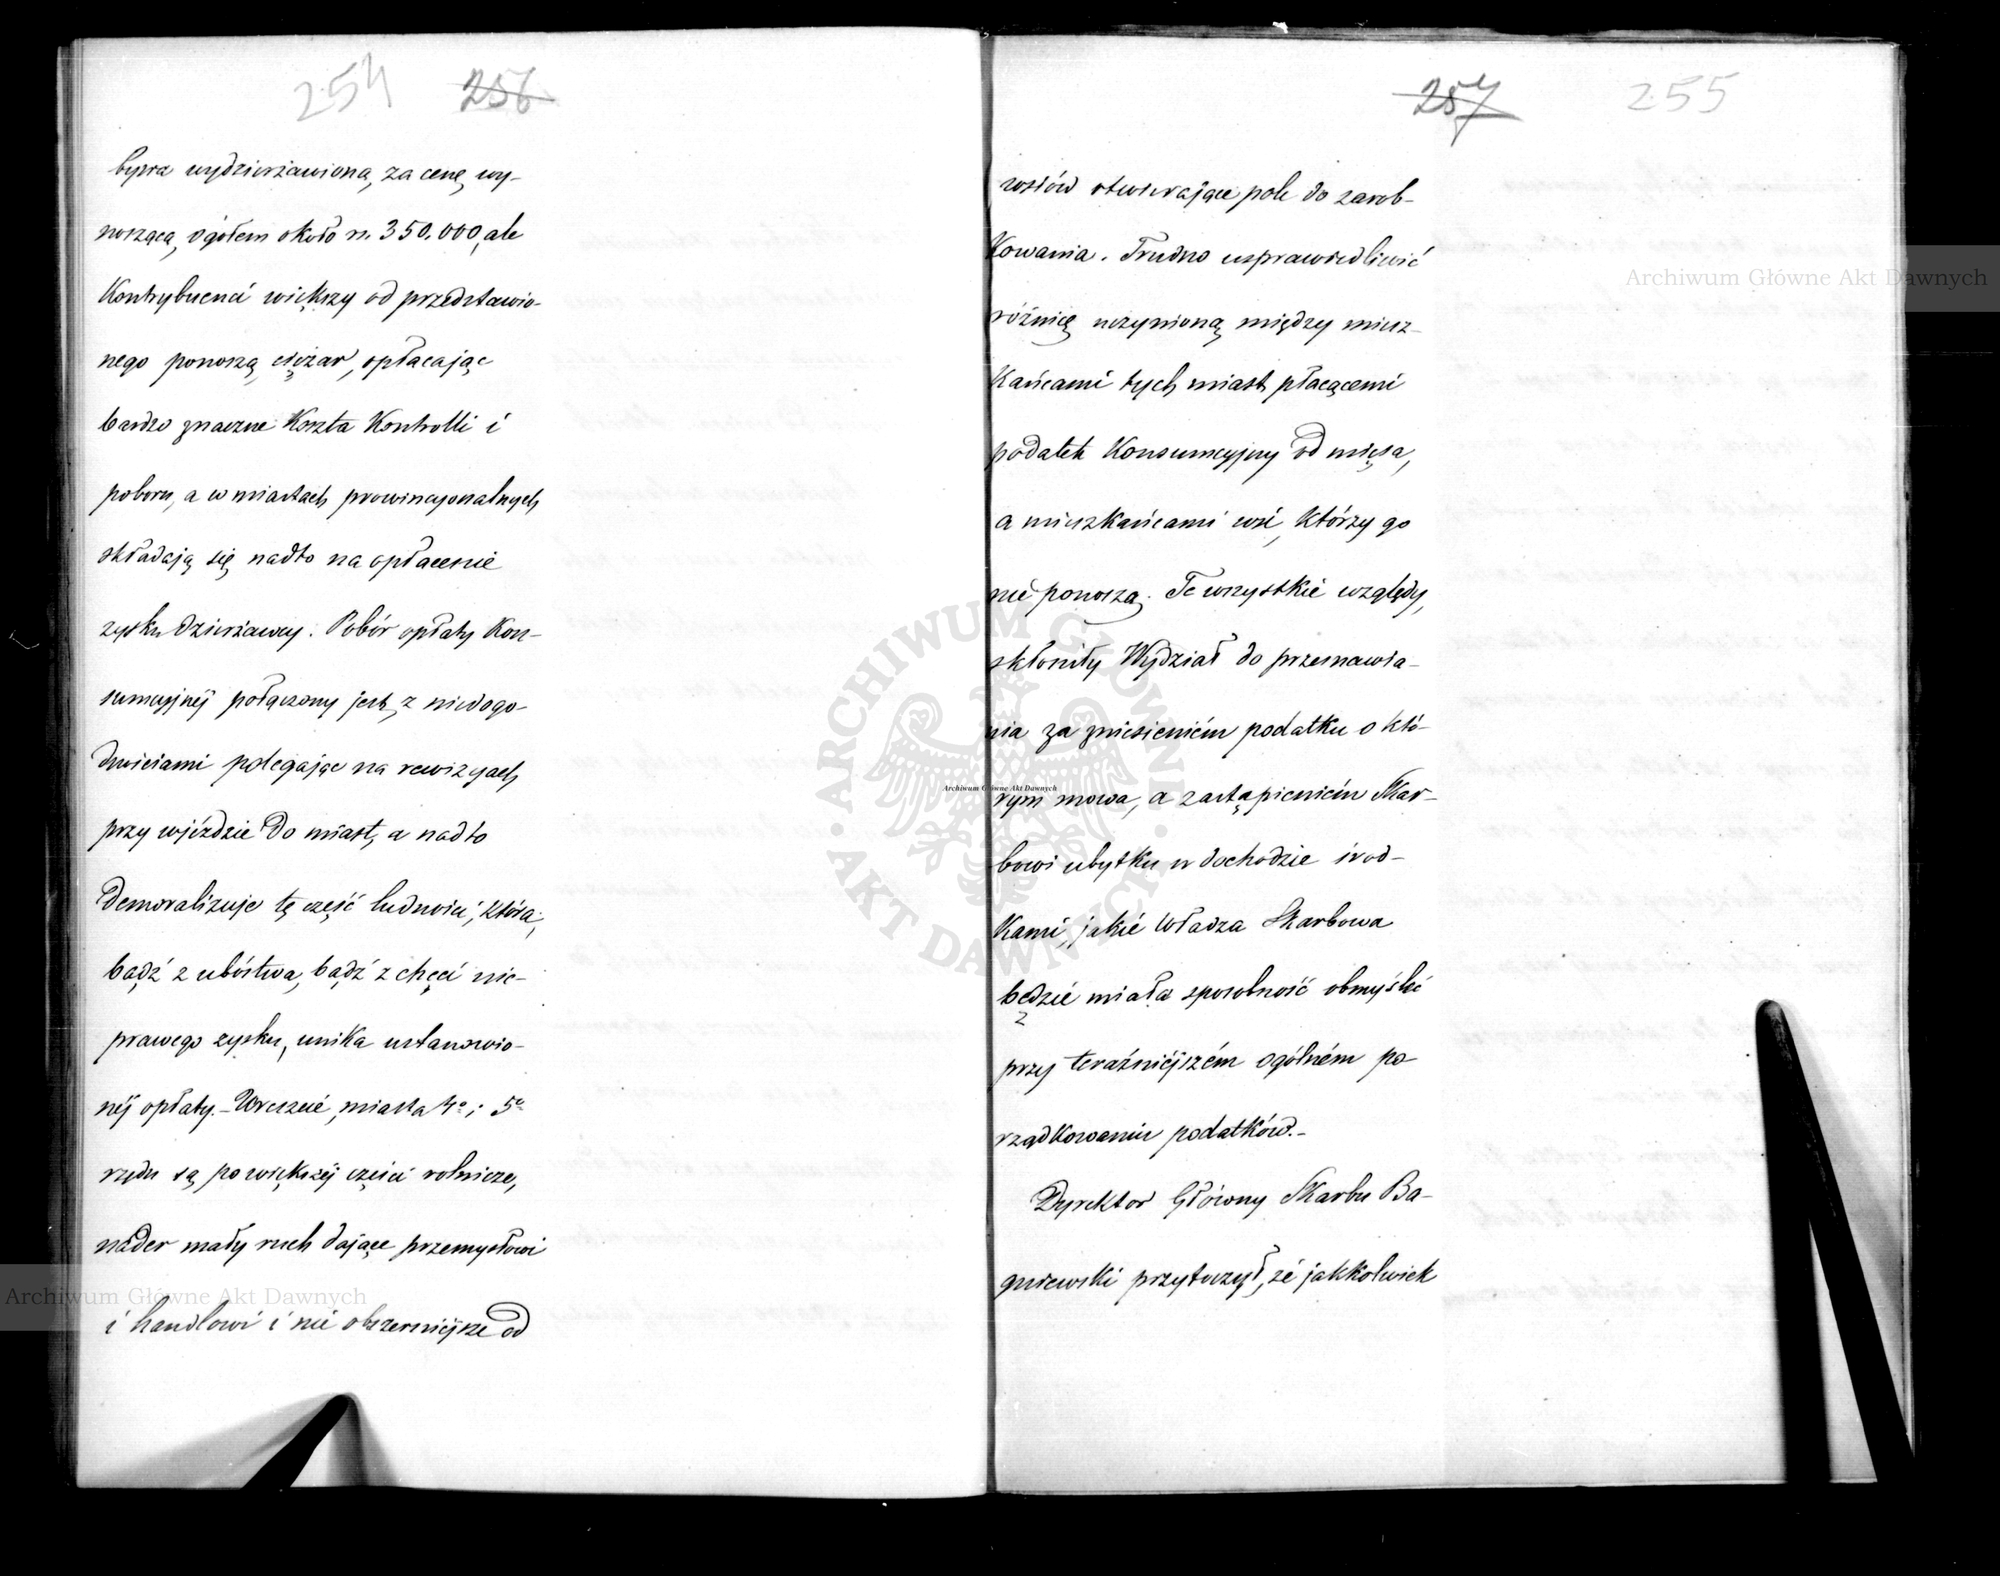 254 256
bywa wydzierżawioną, za cenę wy-
noszącą ogółem około rs. 350.000, ale
Kontrybuenci większy od przedstawio-
nego ponoszą ciężar, opłacając
bardzo znaczne Koszta Kontrolli i
poboru, a w miastach prowincyonalnych
składają się nadto na opłacenie
zysku dzierżawcy. Pobór opłaty Kon-
sumcyjnéj połączony jest z niedogo-
dnościami polegające na rewizyach
przy wjéździe do miast, a nadto
demoralizuje tę część ludności, która,
bądź z ubóstwa, bądź z chęci nie-
prawego zysku, unika ustanowio-
néj opłaty. – Wreszcie, miasta 4o i 5o
rzędu są po większéj części rolnicze,
nader mały ruch dające przemysłowi
i handlowi i nie obszerniejsze od
257 255
wsiów otwierające pole do zarob-
Kowania. Trudno usprawiedliwić
różnicę uczynioną między miesz-
Kańcami tych miast płacącemi
podatek Konsumcyjny od mięsa,
a mieszkańcami wsi, Którzy go
nie ponoszą. Te wszystkie względy,
skłoniły Wydział do przemawia-
nia za zniesieniém podatku o któ-
rym mowa, a zastąpieniém Skar-
bowi ubytku w dochodzie środ-
Kami, jakie Władza Skarbowa
będzie miała sposobność obmyśleć
przy teraźniéjszém ogólném po-
rządkowaniu podatków. –
Dyrektor Główny Skarbu Ba-
gniewski przytoczył, że jakkolwiek
Archiwum Główne Akt Dawnych
Archiwum Główne Akt Dawnych
Archiwum Główne Akt Dawnych
ARCHIWUM GŁÓWNE
AKT DAWNYCH